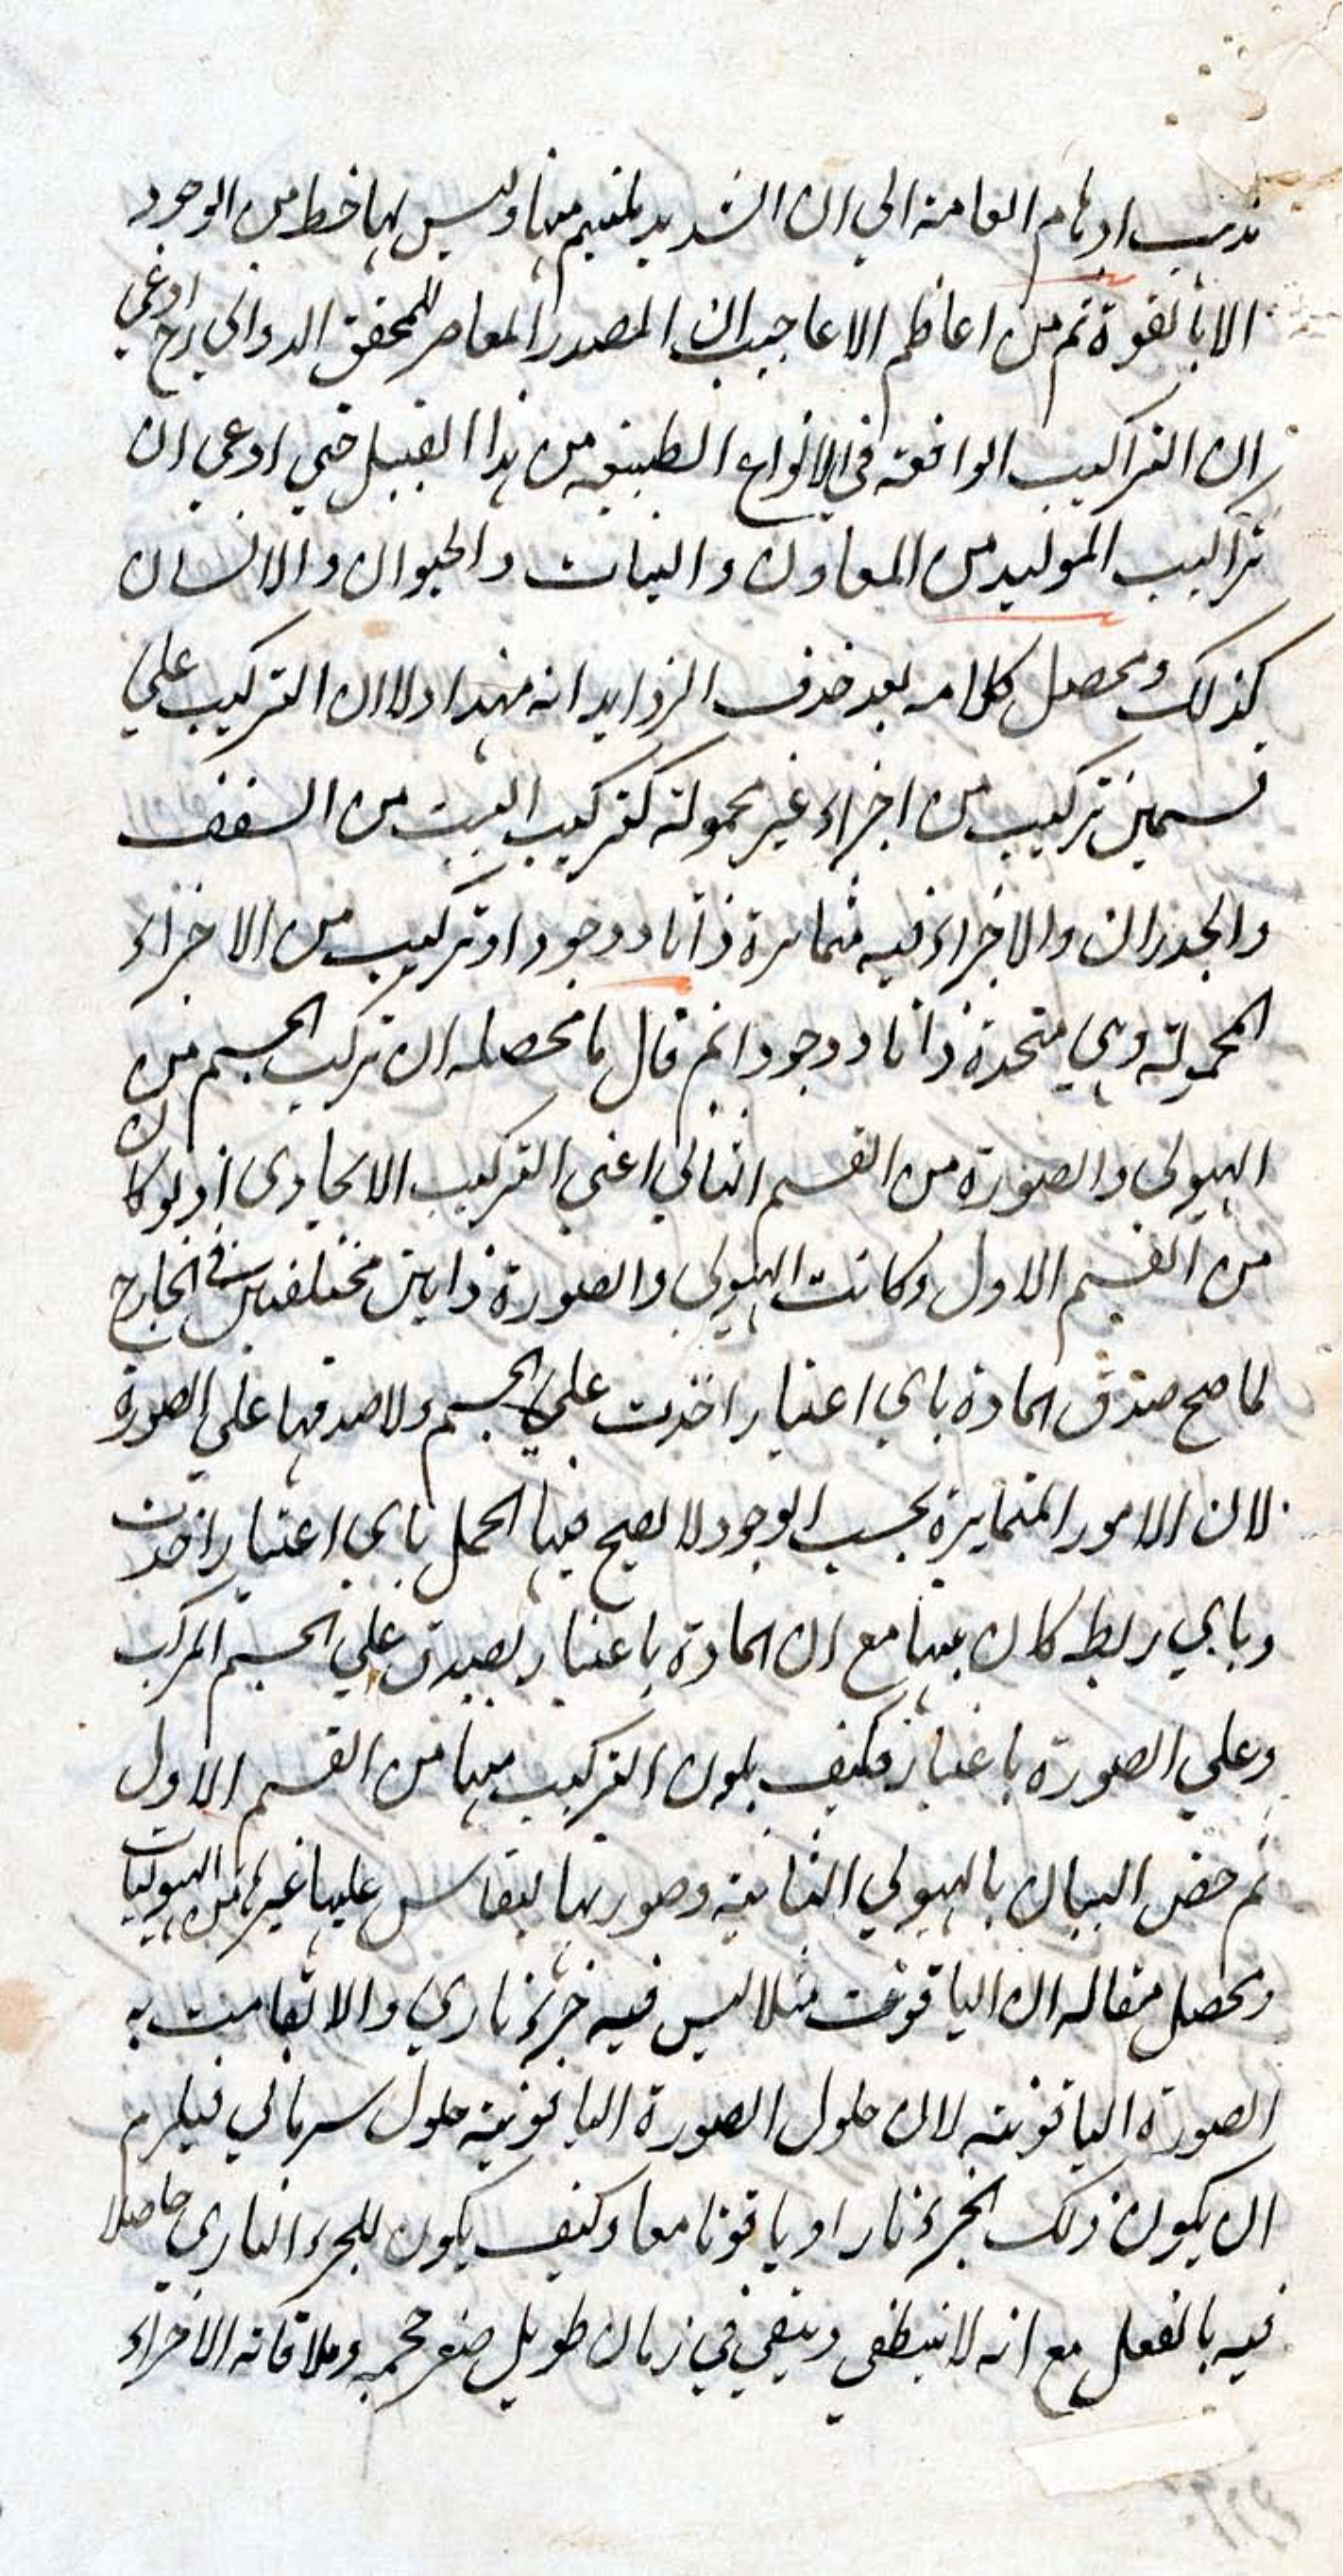 تذهب اوهام العامة الي ان الشديد يلتئيم منها وليس لها حظ من الوجود
الا بالقوة ثم من اعاظم الاعاجيب ان الصدر المعاصر للمحقق الدواني رح ادعي
ان التراكيب الواقعة في الانواع الطبيعية من هذا القبيل حتي ادعي ان
تراكيب المواليد من المعادن والنبات والحيوان والانسان
كذلك ومحصل كلامه بعد حذف الزوايد انه مهد اولا ان التركيب علي
قسمين تركيب من اجزاء غير محمولة كتركيب البيت من السقف
والجدران والاجزاء فيه متمايزة ذاتا ووجودا وتركيب من الاجزاء
المحمولة وهي متحدة ذاتا ووجودا ثم قال ما محصله ان تركب الجسم من
الهيولي والصورة من القسم الثاني اعني التركيب الاتحادي اذ لو كان
من القسم الاول وكانت الهيولي والصورة ذاتين مختلفتين في الخارج
لما صح صدق المادة باي اعتبار اخذت علي الجسم ولا صدقها علي الصورة
لان الامور المتمايزة بحسب الوجود لا يصح فيها الحمل باي اعتبار اخذت
وباي ربط كان بينها مع ان المادة باعتبار يصدق علي الجسم المركب
وعلي الصورة باعتبار فكيف يكون التركيب منها من القسم الاول
ثم خص البيان بالهيولي الثانية وصورتها ليقاس عليها غيرها من الهيوليات
ومحصل مقاله ان الياقوت مثلا ليس فيه جزء ناري والا لقامت به
الصورة الياقوتية لان حلول الصورة الياقوتية حلول سرياني فيلزم
ان يكون ذلك الجزء نارا وياقوتا معا وكيف يكون للجزء الناري حاصلا
فيه بالفعل مع انه لا ينطفي ويبقي في زمان طويل صغر حجمه وملاقاته الاجزاء